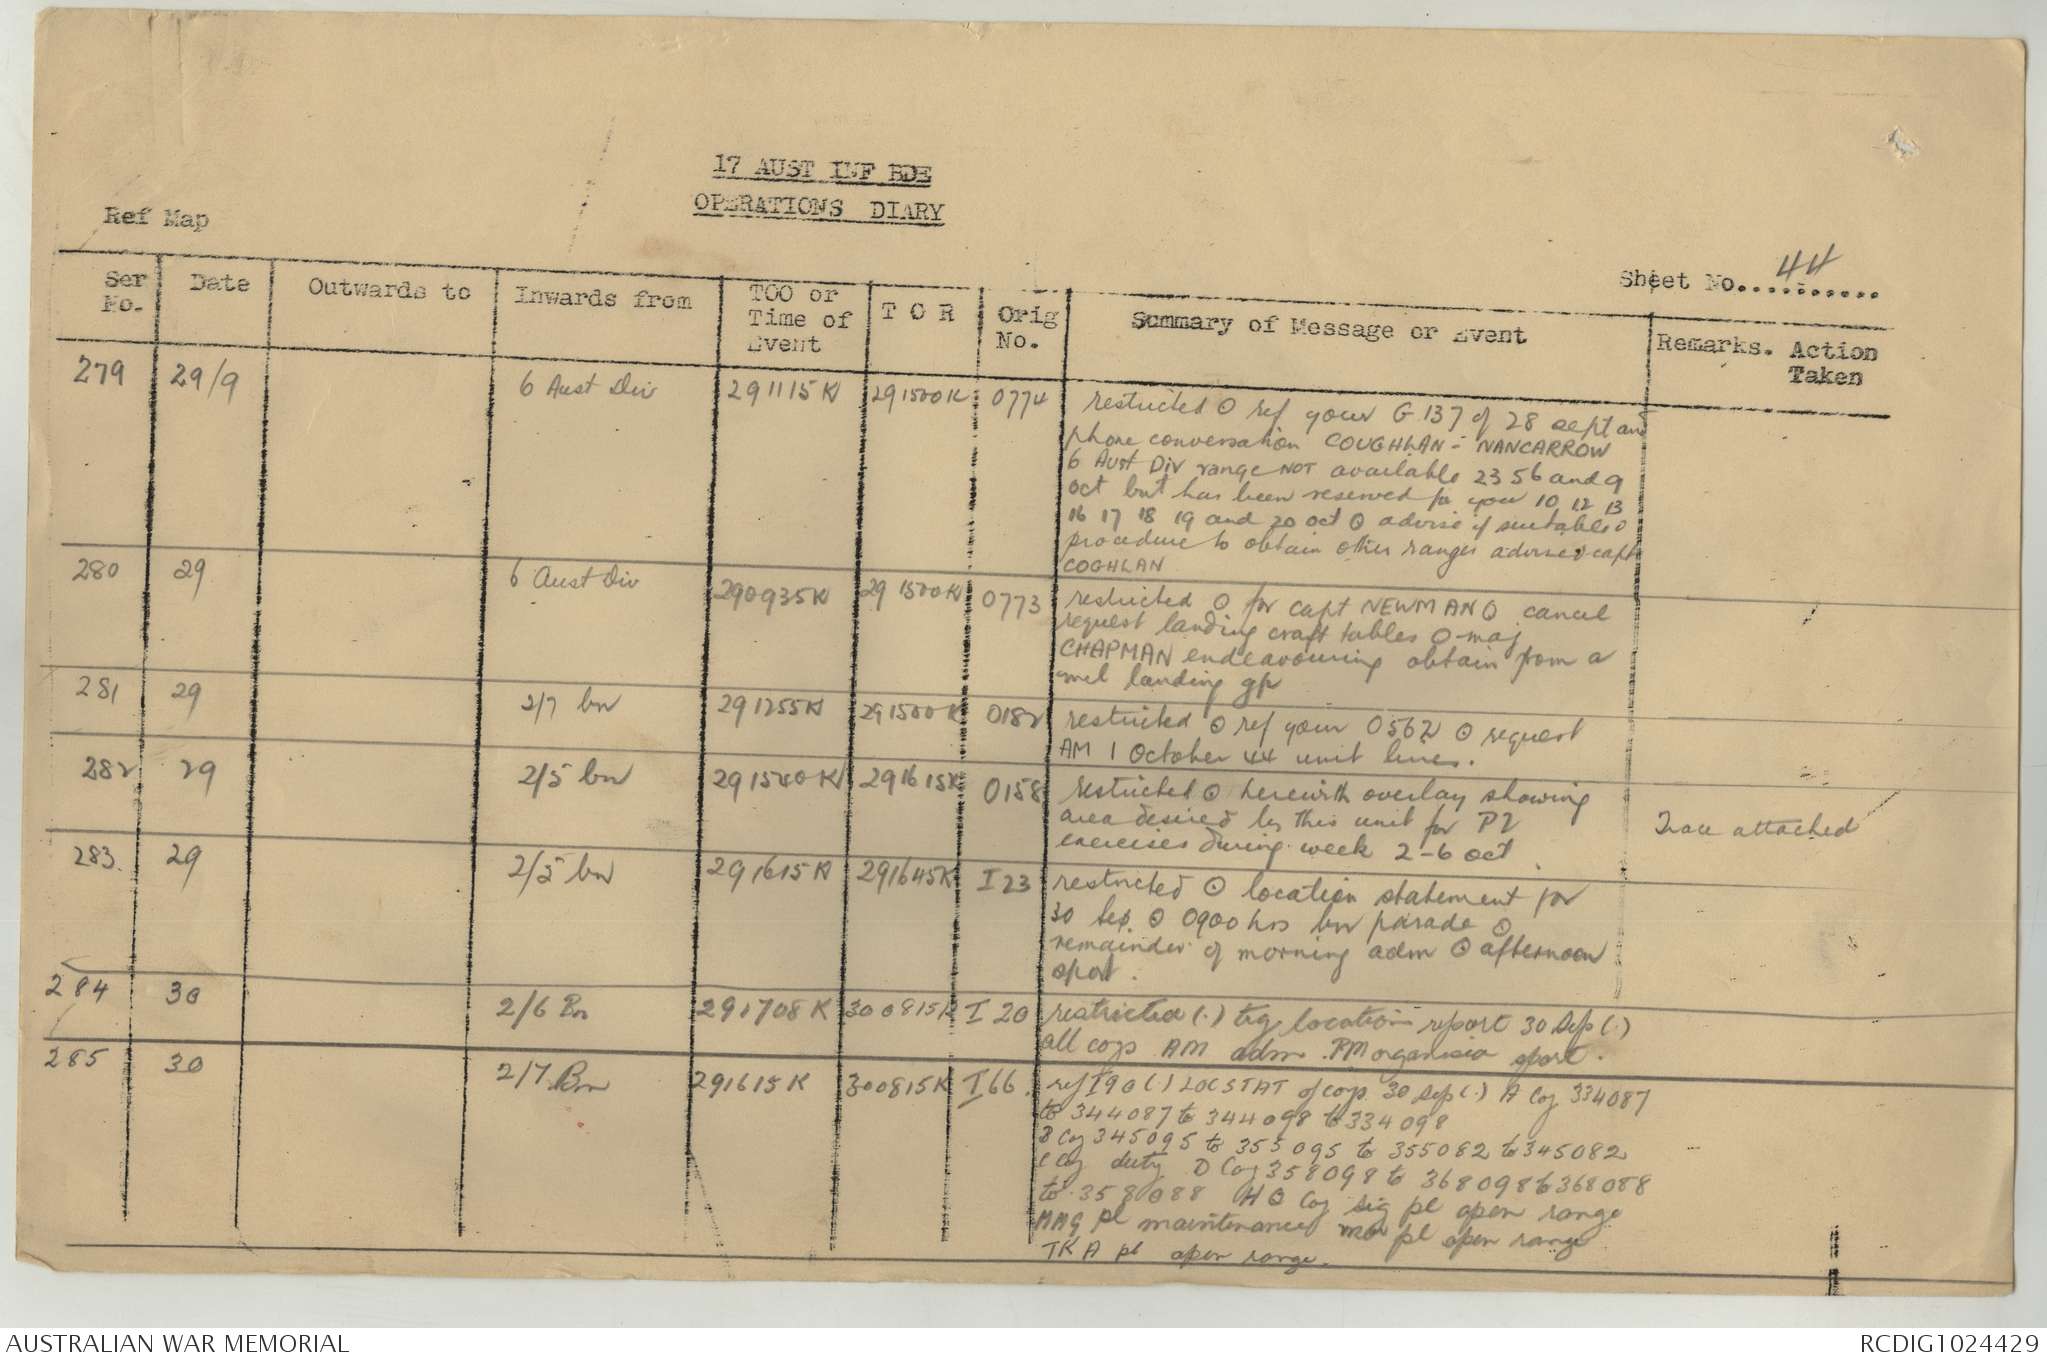 17 AUST INF BDE
OPERATIONS DIARY
Ref Map
Sheet No.. 44
Ser No. Date Outwards to Inwards from TOO or Time of Event T O R Orig No. Summary of Message or Event Remarks. Action Taken
279 29/9 6 Aust Div 291115K 291500K 0774 restricted ⊙ ref your G 137 of 28 sept and
phone conversation COUGHLAN - NANCARROW
6 Aust Div range NOT available 2 3 5 6 and 9
oct but has been reserved for you 10 12 13
16 17 18 19 and 20 oct ⊙ advise if suitable ⊙
procedure to obtain other ranges advise capt
COGHLAN
280 29 6 Aust Div 290935K 291500K 0773 restricted ⊙ for capt NEWMAN ⊙ cancel
request landing craft tables ⊙ maj
CHAPMAN endeavouring obtain from a
mel landing gp
281 29 2/7 bn 291255K 291500K 0182 restricted ⊙ ref your 0562 ⊙ request
AM 1 October 44 unit lines.
282 29 2/5 bn 291540K 291615K 0158 restricted ⊙ herewith overlay showing
area desired by this unit for
exercises during week 2-6 oct
Trace attached
283. 29 2/5 bn 291615K 291645K I 23 restricted ⊙ location statement for
30 Sep. ⊙ 0900 hrs bn parade ⊙
remainder of morning adm ⊙ afternoon
sport.
284 30 2/6 Bn 291708K 300815K I 20 restricted (.) trg location report 30 Sep (.)
all coys AM adm. PM organised sport.
285 30 2/7 Bn 291615K 300815K I 66. ref I 90 (.) LOCSTAT of coys 30 Sep (.) A Coy 334087
to 344087 to 344098 to 334098
B Coy 345095 to 355095 to 355082 to 345082
C Coy duty D Coy 358098 to 368098 to 368088
to 358088 HQ Coy sig pl open range
MMG pl maintenance mor pl open range
TKA pl open range.
AUSTRALIAN WAR MEMORIAL
RCDIG1024429